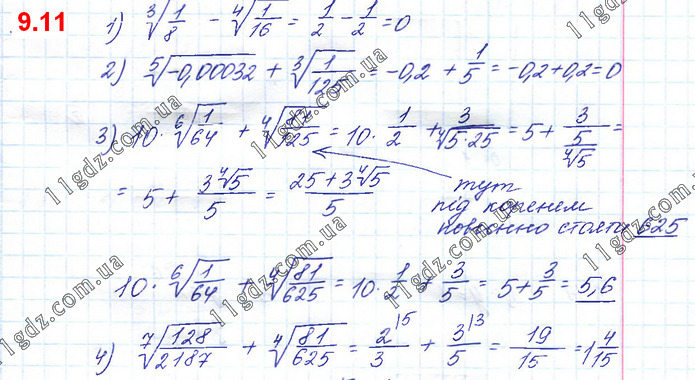 9.11
1) ∛(1/8) - ∜(1/16) = 1/2 - 1/2 = 0
2) ⁵√(-0,00032) + ∛(1/125) = -0,2 + 1/5 = -0,2 + 0,2 = 0
3) 10 · ⁶√(1/64) + ∜(81/125) = 10 · 1/2 + 3/∜(5·25) = 5 + 3/(5/∜5) =
= 5 + 3∜5/5 = (25 + 3∜5)/5
тут
під коренем
повинно стояти 625
10 · ⁶√(1/64) + ∜(81/625) = 10 · 1/2 + 3/5 = 5 + 3/5 = 5,6
4) ⁷√(128/2187) + ∜(81/625) = 2^(15/3 + 3^(13/5 = 19/15 = 1 4/15
11gdz.com.ua
11gdz.com.ua
11gdz.com.ua
11gdz.com.ua
11gdz.com.ua
11gdz.com.ua